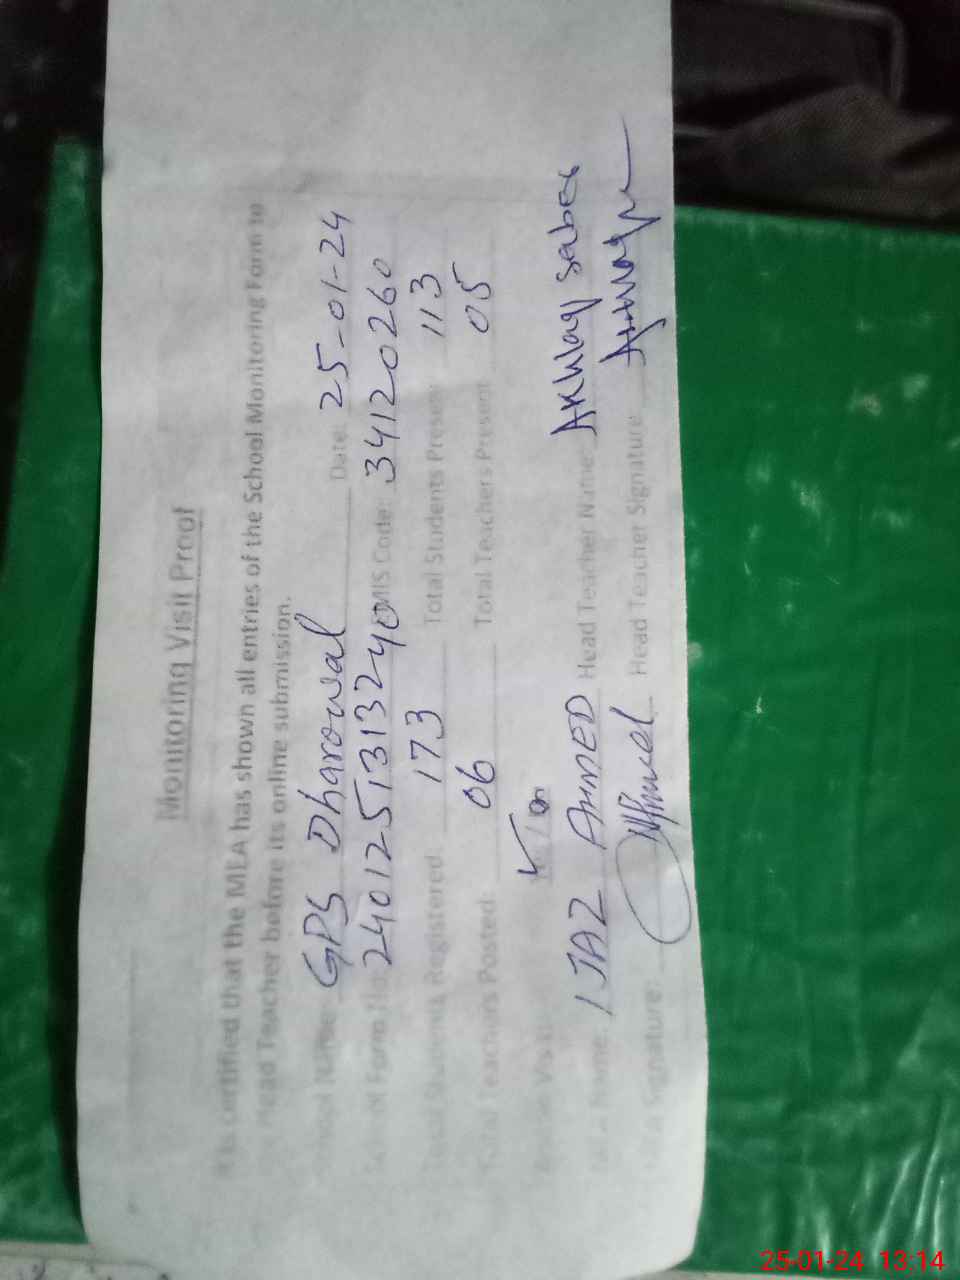 Monitoring Visit Proof
It is certified that the MEA has shown all entries of the School Monitoring Form to
Head Teacher before its online submission.
School Name: GPS Dharowal Date: 25-01-24
Form No 2401251313240 EMIS Code: 34120260
Total Students Registered: 173 Total Students Present: 113
Total Teachers Posted: 06 Total Teachers Present: 05
Name IJAZ AHMED Head Teacher Name: Akhlaq saber
Signature: Head Teacher Signature:
25-01-24 13:14